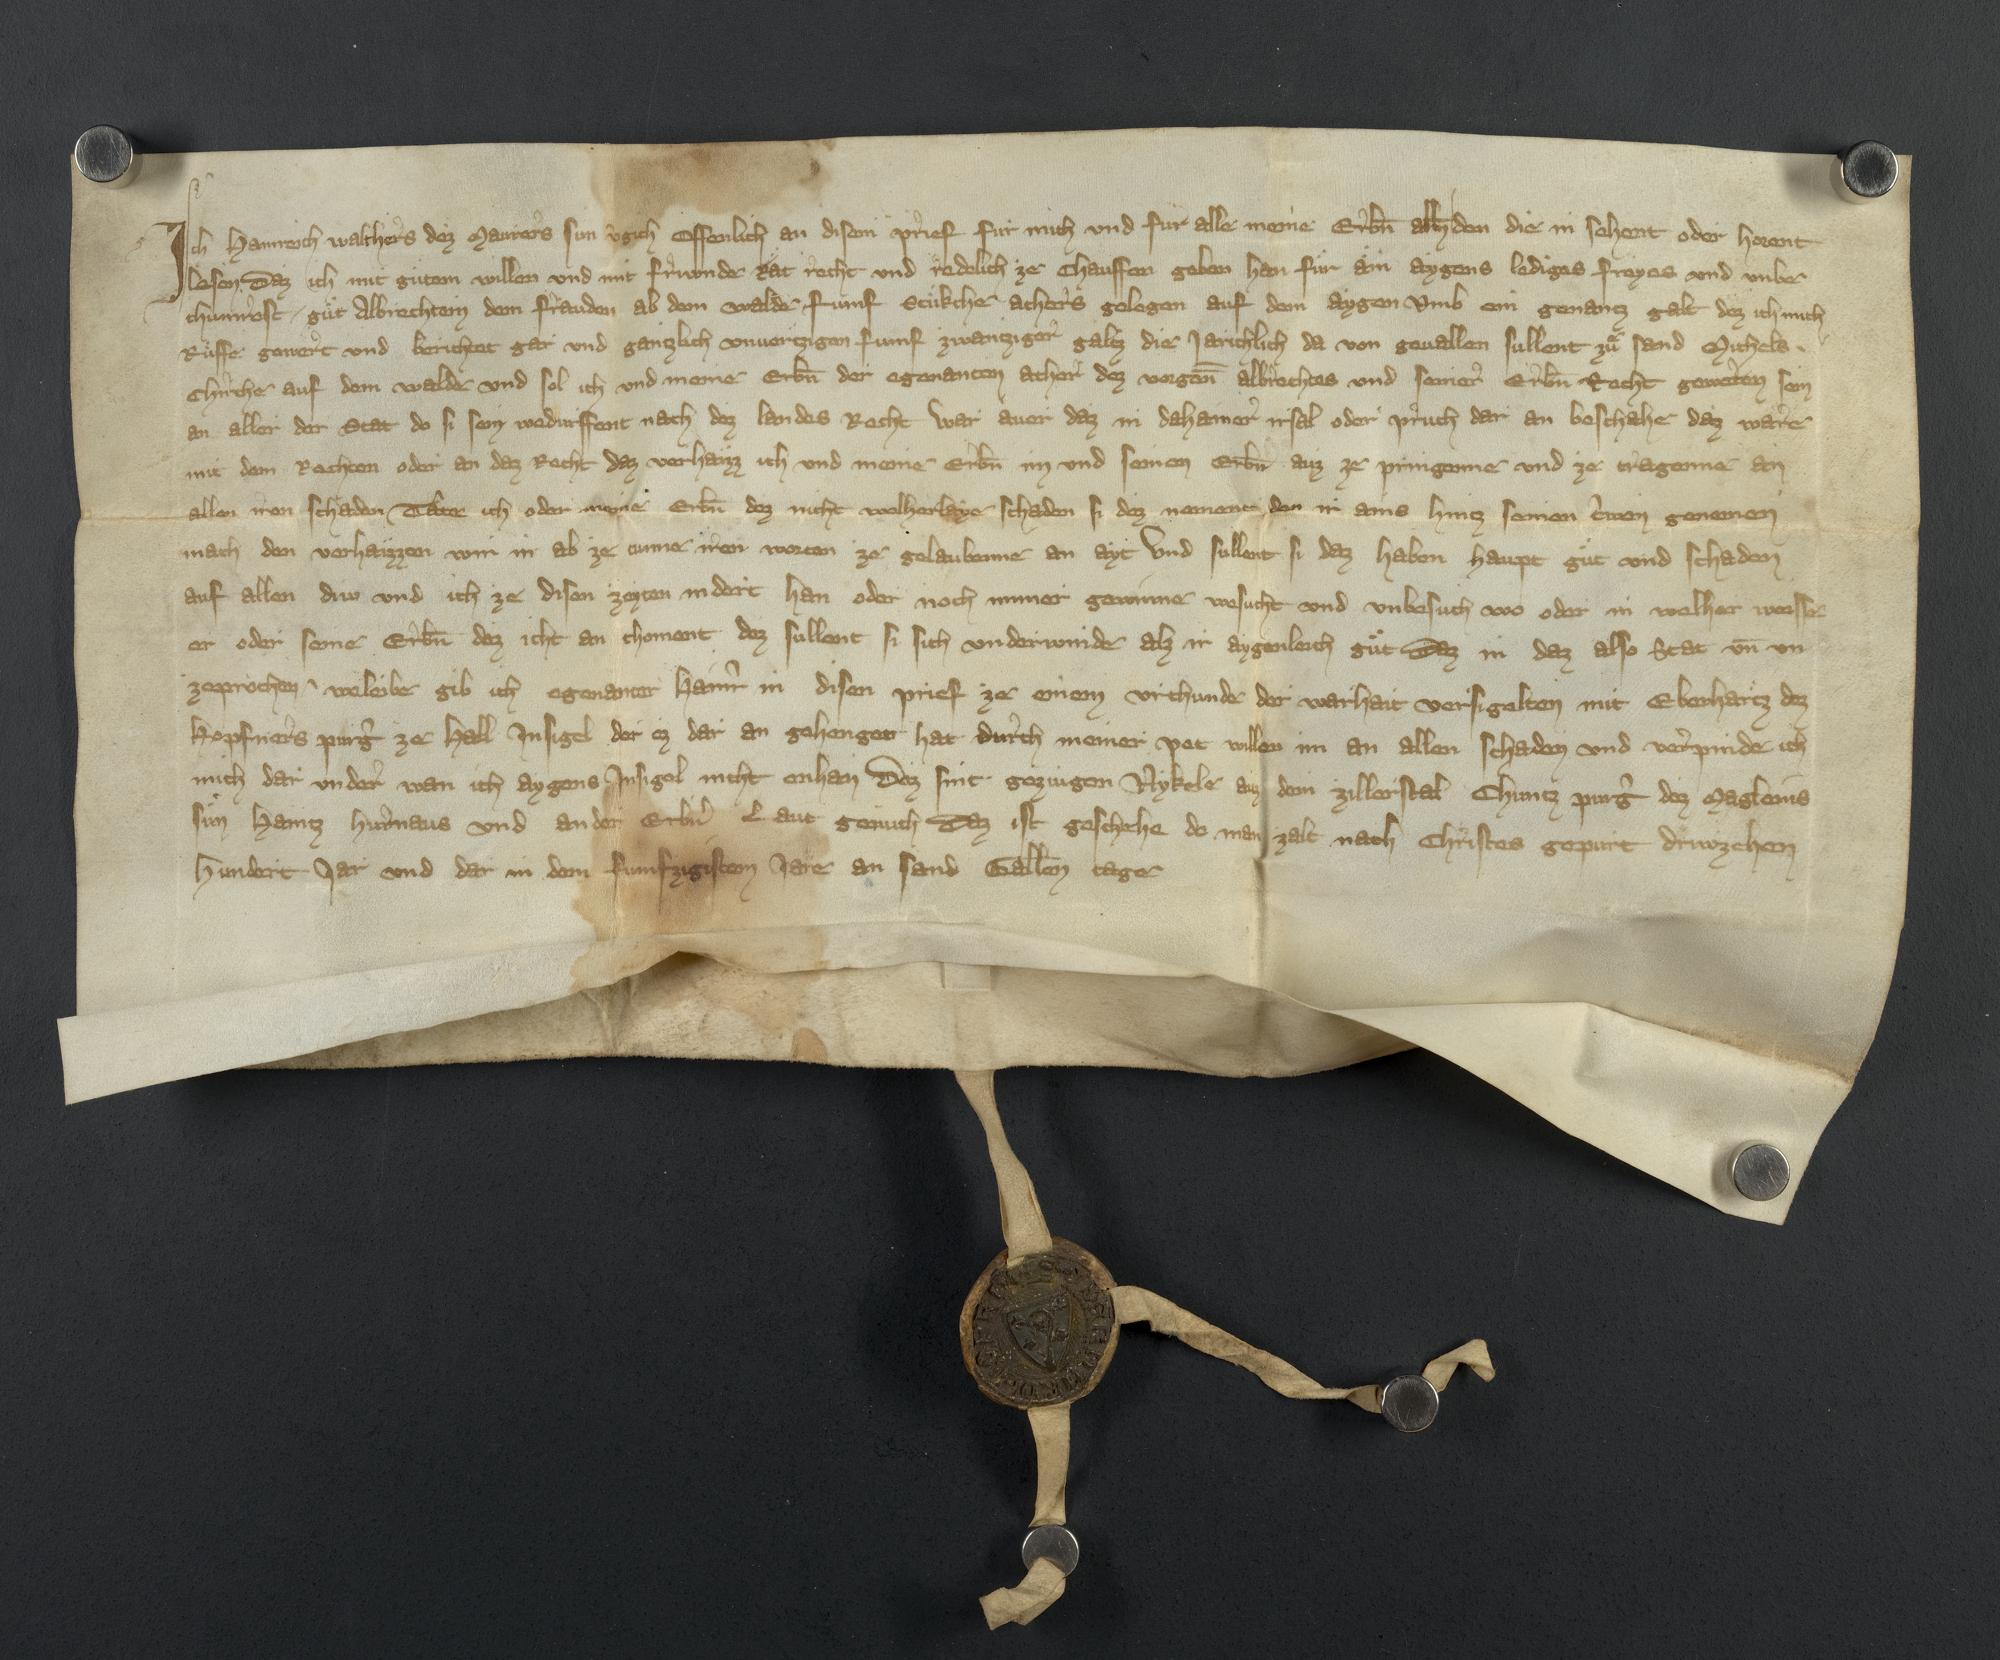 Ich Hainreich walthers dez Maurers sun vgich Offenlich an disem prief fur mich vnd fur alle meine Erbn̄ allen den die in sehent oder horent
lesen Daz ich mit gůtem willen vnd mit friwnde Rat recht vnd redelich ze Chauffen geben han fur ain aygens lediges freyes vnd vnber
chumrest gůt Albrechtem dem frauden ab dem walde funf Stukche achers gelegen auf dem aygen Vmb ein genantz galt dez ich mich
Růffe gewert vnd berichtet gar vnd gantzlich vnuertzigen funf zwantziger galtz die Jarichlich da von geuallen sullent zů sand Michels
Chirche auf dem walde vnd sol ich vnd meine Erbn̄ der egenanten acher dez vorgen̄ albrechtes vnd seiner Erbn̄ Recht geweren sein
an aller der Stat do si sein wedurffent nach dez landes Recht War auer daz in dahainer irsal oder pruch dar an beschahe daz ware
mit dem Rechten oder an daz Recht daz verhaizz ich vnd meine Erbn̄ im vnd seinen Erbn̄ auz ze pringenne vnd ze tragenne an
allen iren schaden Tate ich oder meine Erbn̄ dez nicht welherlaye schaden si dez nement den ir ains hintz seinen triwen genemen
mach den verhaizzen wir in ab ze tunne iren worten ze gelaubenne an ayt Vnd sullent si daz haben haupt gůt vnd schaden
auf allen diw vnd ich ze disen zeyten indert han oder noch immer gewinne wesucht vnd vnbesuch wo oder in welher weisse
er oder seine Erbn̄ dez icht an choment dez sullent si sich vnderwinde alz ir aygenleich gůt Daz in daz also Stat vn̄ vn
zeprochen weleibe gib ich egenanter Hainr in disen prief ze einem vrchunde der warhait versigelten mit Eberhartz dez
Kopfners purg ze Hall Insigel der ez dar an gehenget hat durch meiner pet willen im an allen schaden vnd verpinde ich
mich dar vnder wan ich aygens Insigel nicht enhan Dez sint gezivgen Nykele auz dem zillerstal Chuntz purg dez Magleins
sun Haintz hurnaus vnd ander Erbr̄ Laut genuch Daz ist geschehe do man zalt nach Christes gepurt driwzehen
Hundert Jar vnd dar in dem funfzigistem Jare an sand Gallen tage